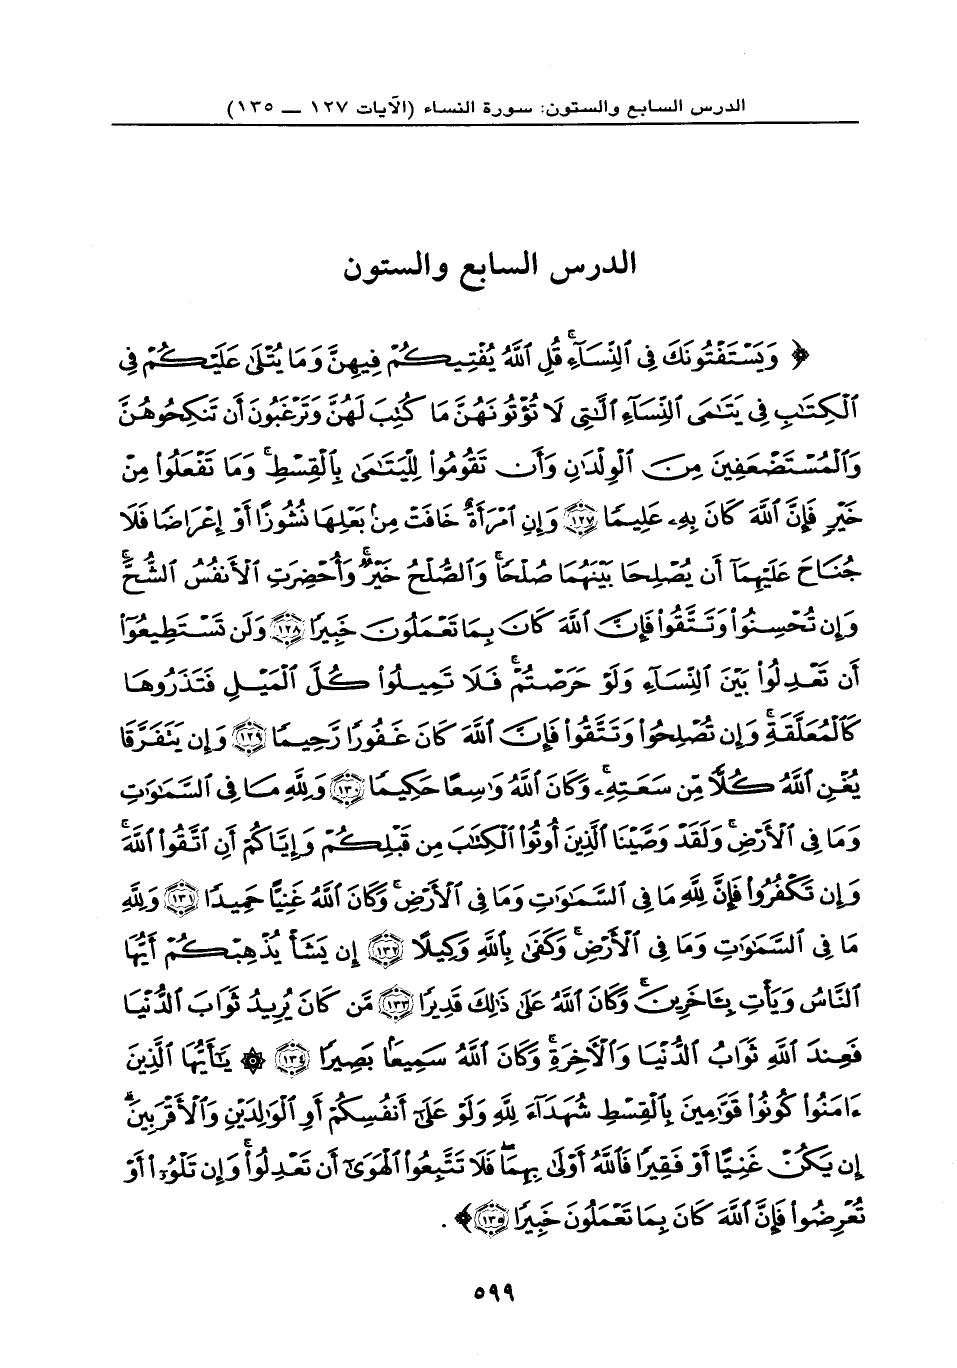 الدرس السابع والستون: سورة النساء (الآيات ١٢٧ — ١٣٥)
الدرس السابع والستون
﴿ وَيَسْتَفْتُونَكَ فِى ٱلنِّسَآءِ ۖ قُلِ ٱللَّهُ يُفْتِيكُمْ فِيهِنَّ وَمَا يُتْلَىٰ عَلَيْكُمْ فِى
ٱلْكِتَٰبِ فِى يَتَٰمَى ٱلنِّسَآءِ ٱلَّٰتِى لَا تُؤْتُونَهُنَّ مَا كُتِبَ لَهُنَّ وَتَرْغَبُونَ أَن تَنكِحُوهُنَّ
وَٱلْمُسْتَضْعَفِينَ مِنَ ٱلْوِلْدَٰنِ وَأَن تَقُومُوا۟ لِلْيَتَٰمَىٰ بِٱلْقِسْطِ ۚ وَمَا تَفْعَلُوا۟ مِنْ
خَيْرٍ فَإِنَّ ٱللَّهَ كَانَ بِهِۦ عَلِيمًا ١٢٧ وَإِنِ ٱمْرَأَةٌ خَافَتْ مِنۢ بَعْلِهَا نُشُوزًا أَوْ إِعْرَاضًا فَلَا
جُنَاحَ عَلَيْهِمَآ أَن يُصْلِحَا بَيْنَهُمَا صُلْحًا ۚ وَٱلصُّلْحُ خَيْرٌ ۗ وَأُحْضِرَتِ ٱلْأَنفُسُ ٱلشُّحَّ ۚ
وَإِن تُحْسِنُوا۟ وَتَتَّقُوا۟ فَإِنَّ ٱللَّهَ كَانَ بِمَا تَعْمَلُونَ خَبِيرًا ١٢٨ وَلَن تَسْتَطِيعُوٓا۟
أَن تَعْدِلُوا۟ بَيْنَ ٱلنِّسَآءِ وَلَوْ حَرَصْتُمْ ۖ فَلَا تَمِيلُوا۟ كُلَّ ٱلْمَيْلِ فَتَذَرُوهَا
كَٱلْمُعَلَّقَةِ ۚ وَإِن تُصْلِحُوا۟ وَتَتَّقُوا۟ فَإِنَّ ٱللَّهَ كَانَ غَفُورًا رَّحِيمًا ١٢٩ وَإِن يَتَفَرَّقَا
يُغْنِ ٱللَّهُ كُلًّا مِّن سَعَتِهِۦ ۚ وَكَانَ ٱللَّهُ وَٰسِعًا حَكِيمًا ١٣٠ وَلِلَّهِ مَا فِى ٱلسَّمَٰوَٰتِ
وَمَا فِى ٱلْأَرْضِ ۗ وَلَقَدْ وَصَّيْنَا ٱلَّذِينَ أُوتُوا۟ ٱلْكِتَٰبَ مِن قَبْلِكُمْ وَإِيَّاكُمْ أَنِ ٱتَّقُوا۟ ٱللَّهَ ۚ
وَإِن تَكْفُرُوا۟ فَإِنَّ لِلَّهِ مَا فِى ٱلسَّمَٰوَٰتِ وَمَا فِى ٱلْأَرْضِ ۚ وَكَانَ ٱللَّهُ غَنِيًّا حَمِيدًا ١٣١ وَلِلَّهِ
مَا فِى ٱلسَّمَٰوَٰتِ وَمَا فِى ٱلْأَرْضِ ۚ وَكَفَىٰ بِٱللَّهِ وَكِيلًا ١٣٢ إِن يَشَأْ يُذْهِبْكُمْ أَيُّهَا
ٱلنَّاسُ وَيَأْتِ بِـَٔاخَرِينَ ۚ وَكَانَ ٱللَّهُ عَلَىٰ ذَٰلِكَ قَدِيرًا ١٣٣ مَّن كَانَ يُرِيدُ ثَوَابَ ٱلدُّنْيَا
فَعِندَ ٱللَّهِ ثَوَابُ ٱلدُّنْيَا وَٱلْءَاخِرَةِ ۚ وَكَانَ ٱللَّهُ سَمِيعًۢا بَصِيرًا ١٣٤ ۞ يَٰٓأَيُّهَا ٱلَّذِينَ
ءَامَنُوا۟ كُونُوا۟ قَوَّٰمِينَ بِٱلْقِسْطِ شُهَدَآءَ لِلَّهِ وَلَوْ عَلَىٰٓ أَنفُسِكُمْ أَوِ ٱلْوَٰلِدَيْنِ وَٱلْأَقْرَبِينَ ۚ
إِن يَكُنْ غَنِيًّا أَوْ فَقِيرًا فَٱللَّهُ أَوْلَىٰ بِهِمَا ۖ فَلَا تَتَّبِعُوا۟ ٱلْهَوَىٰٓ أَن تَعْدِلُوا۟ ۚ وَإِن تَلْوُۥٓا۟ أَوْ
تُعْرِضُوا۟ فَإِنَّ ٱللَّهَ كَانَ بِمَا تَعْمَلُونَ خَبِيرًا ١٣٥ ﴾ .
٥٩٩